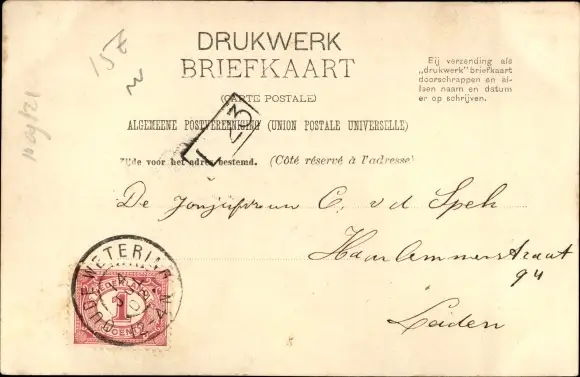 15t
DRUKWERK
BRIEFKAART
(CARTE POSTALE)
ALGEMEENE POSTVEREENIGING (UNION POSTALE UNIVERSELLE)
Zijde voor het adres bestemd. (Côté réservé à l'adresse)
Bij verzending als
„drukwerk" briefkaart
doorschrappen en al-
leen naam en datum
er op schrijven.
23
De Jonjufvrouw C. v d Spek
Haarlemmerstraat
94
Leiden
OUDE WETERING
1
CENT